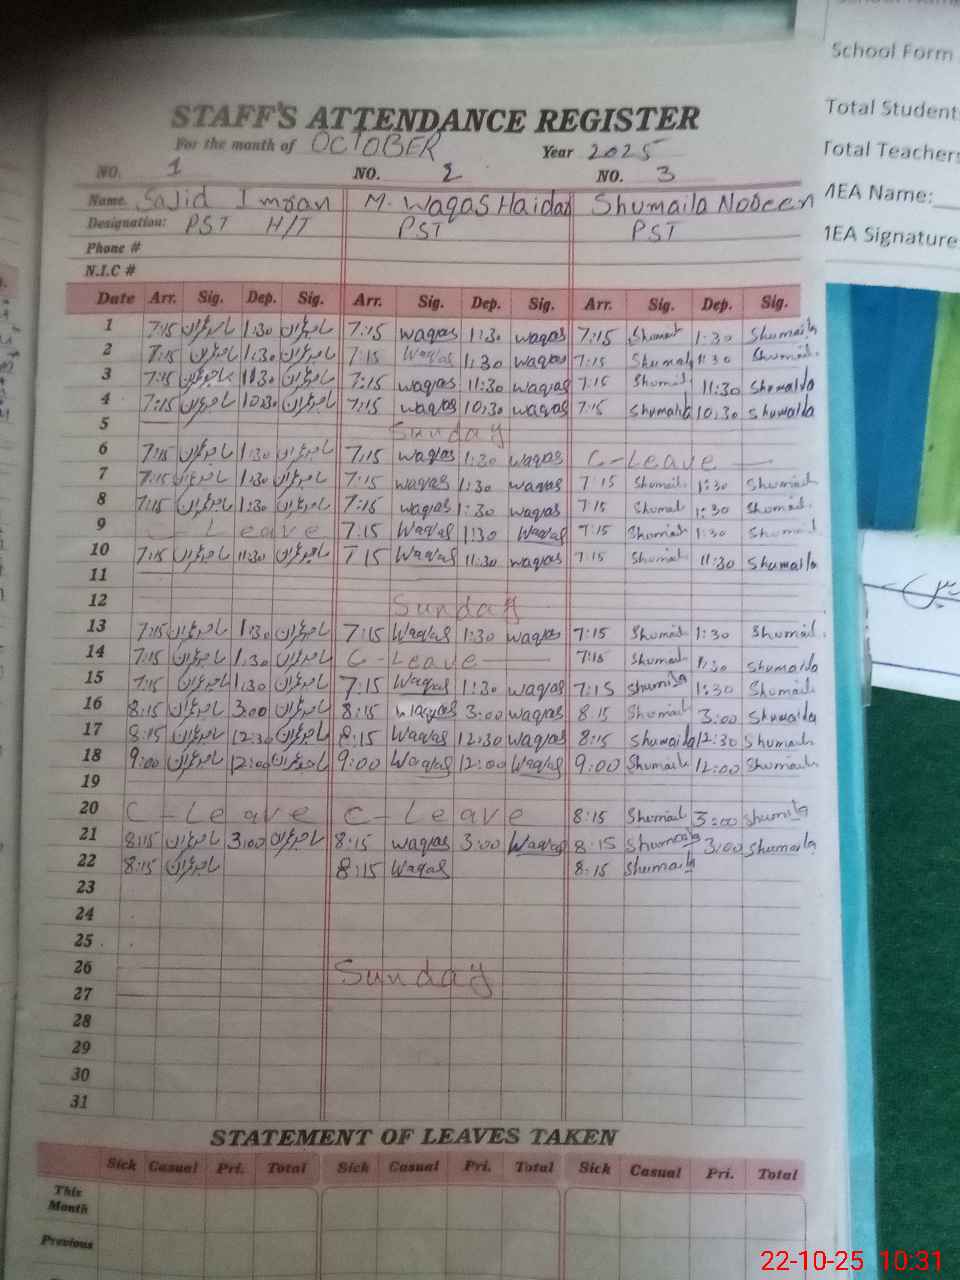 School Form
Total Students
Total Teachers
MEA Name:
MEA Signature
STAFF'S ATTENDANCE REGISTER
For the month of OCTOBER Year 2025
NO. 1 NO. 2 NO. 3
Name. Sajid Imran M. Waqas Haidar Shumaila Nobeen
Designation: PST H/T PST PST
Phone #
N.I.C #
Date Arr. Sig. Dep. Sig. Arr. Sig. Dep. Sig. Arr. Sig. Dep. Sig.
1 7:15 1:30 7:15 waqas 1:30 waqas 7:15 Shumail 1:30 Shumaila
2 7:15 1:30 7:15 Waqas 1:30 waqas 7:15 Shumaila 11:30 Shumail
3 7:15 11:30 7:15 waqas 11:30 waqas 7:15 Shumail 11:30 Shumaila
4 7:15 10:30 7:15 waqas 10:30 waqas 7:15 Shumaila 10:30 Shumaila
5 Sunday
6 7:15 1:30 7:15 waqas 1:30 waqas C-Leave
7 7:15 1:30 7:15 waqas 1:30 waqas 7:15 Shumail 1:30 Shumail
8 7:15 1:30 7:15 waqas 1:30 waqas 7:15 Shumail 1:30 Shumail
9 C- Leave 7:15 Waqas 1:30 Waqas 7:15 Shumail 1:30 Shumail
10 7:15 11:30 7:15 Waqas 11:30 waqas 7:15 Shumail 11:30 Shumaila
11
12 Sunday
13 7:15 1:30 7:15 Waqas 1:30 waqas 7:15 Shumail 1:30 Shumail
14 7:15 1:30 C-Leave 7:15 Shumail 1:30 Shumaila
15 7:15 1:30 7:15 Waqas 1:30 waqas 7:15 Shumila 1:30 Shumail
16 8:15 3:00 8:15 waqas 3:00 waqas 8:15 Shumail 3:00 Shumaila
17 8:15 12:30 8:15 Waqas 12:30 waqas 8:15 Shumaila 12:30 Shumaila
18 9:00 12:00 9:00 Waqas 12:00 Waqas 9:00 Shumaila 12:00 Shumaila
19
20 C-Leave C-Leave 8:15 Shumail 3:00 Shumila
21 8:15 3:00 8:15 waqas 3:00 Waqas 8:15 Shumaila 3:00 Shumaila
22 8:15 8:15 Waqas 8:15 Shumaila
23
24
25
26 Sunday
27
28
29
30
31
STATEMENT OF LEAVES TAKEN
Sick Casual Pri. Total Sick Casual Pri. Total Sick Casual Pri. Total
This
Month
Previous
22-10-25 10:31